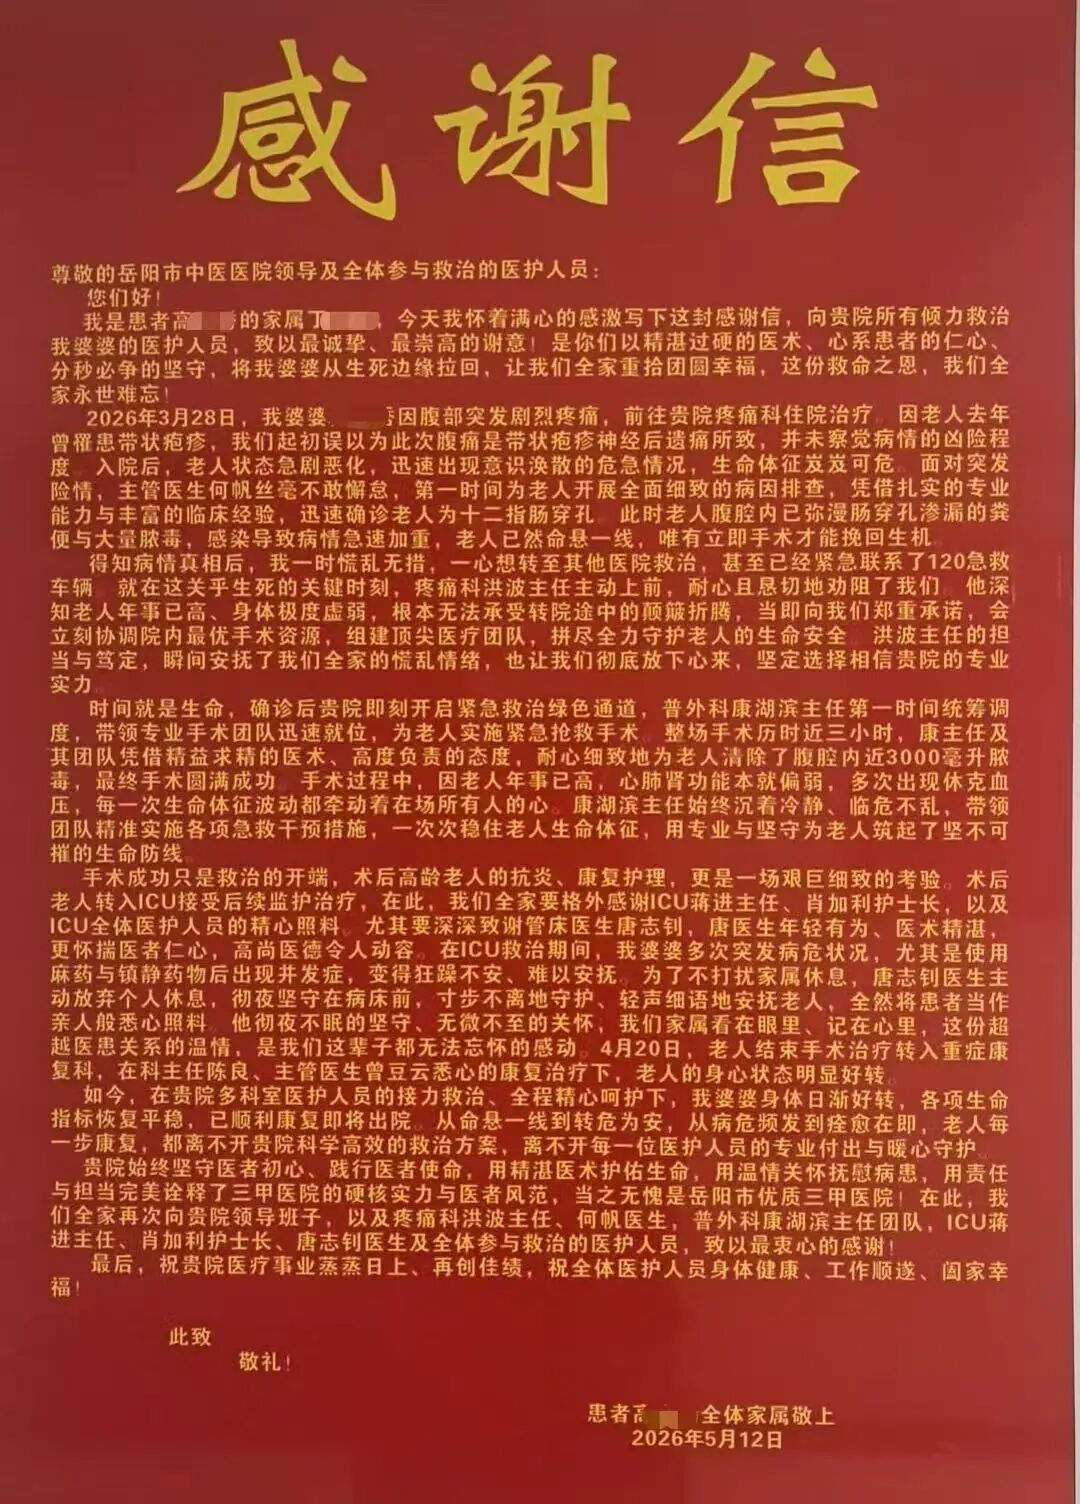 感谢信
尊敬的岳阳市中医医院领导及全体参与救治的医护人员：
您们好！
我是患者高的家属丁，今天我怀着满心的感激写下这封感谢信，向贵院所有倾力救治
我婆婆的医护人员，致以最诚挚、最崇高的谢意！是你们以精湛过硬的医术、心系患者的仁心、
分秒必争的坚守，将我婆婆从生死边缘拉回，让我们全家重拾团圆幸福，这份救命之恩，我们全
家永世难忘！
2026年3月28日，我婆婆因腹部突发剧烈疼痛，前往贵院疼痛科住院治疗。因老人去年
曾罹患带状疱疹，我们起初误以为此次腹痛是带状疱疹神经后遗痛所致，并未察觉病情的凶险程
度。入院后，老人状态急剧恶化，迅速出现意识涣散的危急情况，生命体征岌岌可危。面对突发
险情，主管医生何帆丝毫不敢懈怠，第一时间为老人开展全面细致的病因排查，凭借扎实的专业
能力与丰富的临床经验，迅速确诊老人为十二指肠穿孔。此时老人腹腔内已弥漫肠穿孔渗漏的粪
便与大量脓毒，感染导致病情急速加重，老人已然命悬一线，唯有立即手术才能挽回生机。
得知病情真相后，我一时慌乱无措，一心想转至其他医院救治，甚至已经紧急联系了120急救
车辆。就在这关乎生死的关键时刻，疼痛科洪波主任主动上前，耐心且恳切地劝阻了我们。他深
知老人年事已高、身体极度虚弱，根本无法承受转院途中的颠簸折腾，当即向我们郑重承诺，会
立刻协调院内最优手术资源，组建顶尖医疗团队，拼尽全力守护老人的生命安全。洪波主任的担
当与笃定，瞬间安抚了我们全家的慌乱情绪，也让我们彻底放下心来，坚定选择相信贵院的专业
实力。
时间就是生命，确诊后贵院即刻开启紧急救治绿色通道，普外科康湖滨主任第一时间统筹调
度，带领专业手术团队迅速就位，为老人实施紧急抢救手术。整场手术历时近三小时，康主任及
其团队凭借精益求精的医术、高度负责的态度，耐心细致地为老人清除了腹腔内近3000毫升脓
毒，最终手术圆满成功。手术过程中，因老人年事已高，心肺肾功能本就偏弱，多次出现休克血
压，每一次生命体征波动都牵动着在场所有人的心。康湖滨主任始终沉着冷静、临危不乱，带领
团队精准实施各项急救干预措施，一次次稳住老人生命体征，用专业与坚守为老人筑起了坚不可
摧的生命防线。
手术成功只是救治的开端，术后高龄老人的抗炎、康复护理，更是一场艰巨细致的考验。术后
老人转入ICU接受后续监护治疗，在此，我们全家要格外感谢ICU蒋进主任、肖加利护士长，以及
ICU全体医护人员的精心照料。尤其要深深致谢管床医生唐志钊，唐医生年轻有为、医术精湛，
更怀揣医者仁心，高尚医德令人动容。在ICU救治期间，我婆婆多次突发病危状况，尤其是使用
麻药与镇静药物后出现并发症，变得狂躁不安、难以安抚。为了不打扰家属休息，唐志钊医生主
动放弃个人休息，彻夜坚守在病床前，寸步不离地守护、轻声细语地安抚老人，全然将患者当作
亲人般悉心照料。他彻夜不眠的坚守、无微不至的关怀，我们家属看在眼里、记在心里，这份超
越医患关系的温情，是我们这辈子都无法忘怀的感动。4月20日，老人结束手术治疗转入重症康
复科，在科主任陈良、主管医生曾豆云悉心的康复治疗下，老人的身心状态明显好转。
如今，在贵院多科室医护人员的接力救治、全程精心呵护下，我婆婆身体日渐好转，各项生命
指标恢复平稳，已顺利康复即将出院。从命悬一线到转危为安，从病危频发到痊愈在即，老人每
一步康复，都离不开贵院科学高效的救治方案，离不开每一位医护人员的专业付出与暖心守护。
贵院始终坚守医者初心、践行医者使命，用精湛医术护佑生命，用温情关怀抚慰病患，用责任
与担当完美诠释了三甲医院的硬核实力与医者风范，当之无愧是岳阳市优质三甲医院！在此，我
们全家再次向贵院领导班子，以及疼痛科洪波主任、何帆医生，普外科康湖滨主任团队，ICU蒋
进主任、肖加利护士长、唐志钊医生及全体参与救治的医护人员，致以最衷心的感谢！
最后，祝贵院医疗事业蒸蒸日上、再创佳绩，祝全体医护人员身体健康、工作顺遂、阖家幸
福！
此致
敬礼！
患者高全体家属敬上
2026年5月12日